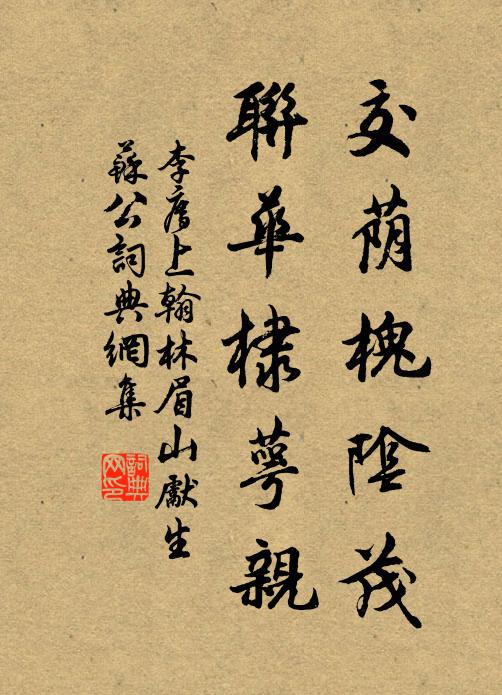 交荫槐陰茂
聯華棣萼親
李廌上翰林眉山獻生
蘇公詞典網集
詞典
网印